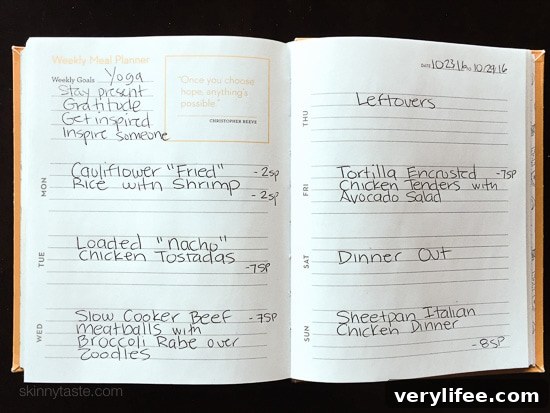 Weekly Meal Planner
Weekly Goals Yoga
Stay present
Gratitude
Get inspired
Inspire someone
"Once you choose
hope, anything's
possible."
CHRISTOPHER REEVE
MON
Cauliflower "Fried" - 2sp
Rice with Shrimp
- 2sp
TUE
Loaded "nacho"
Chicken Tostadas
-7SP
WED
Slow Cooker Beef -7SP
meatballs with
Broccoli Rabe over
Zoodles
DATE 10.23.16 TO 10.29.16
THU
Leftovers
FRI
Tortilla Encrusted -7SP
Chicken Tenders with
Avocado Salad
SAT
Dinner Out
SUN
Sheetpan Italian
Chicken Dinner
-8SP
skinnytaste.com
verylifee.com